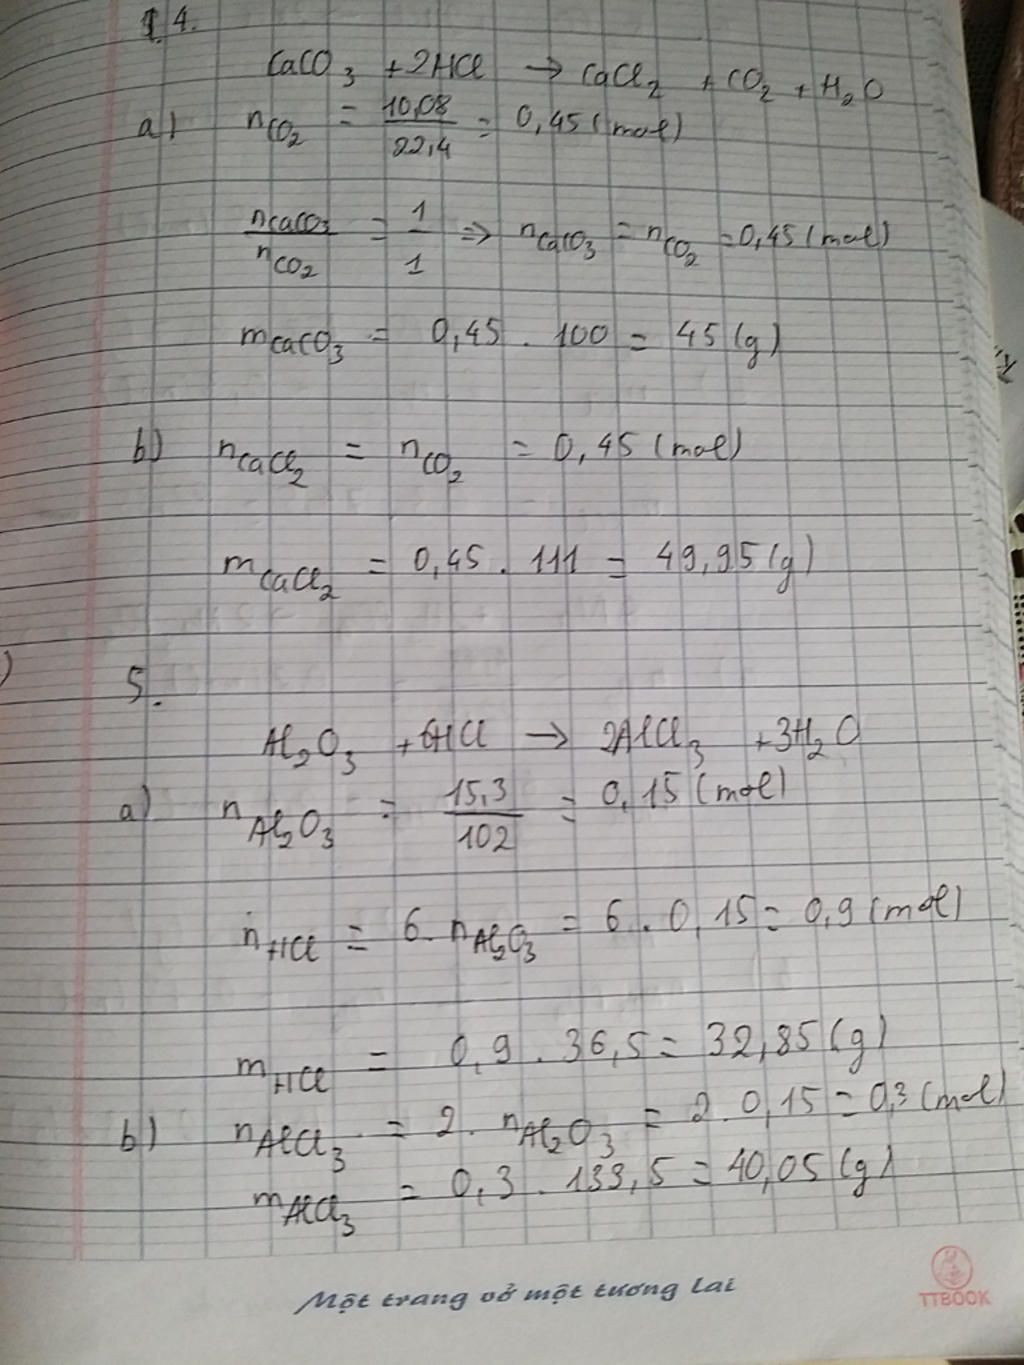 4.
CaCO3 + 2HCl → CaCl2 + CO2 + H2O
a) nCO2 = 10,08/22,4 = 0,45 (mol)
nCaCO3/nCO2 = 1/1 => nCaCO3 = nCO2 = 0,45 (mol)
mCaCO3 = 0,45 . 100 = 45 (g)
b) nCaCl2 = nCO2 = 0,45 (mol)
mCaCl2 = 0,45 . 111 = 49,95 (g)
5.
Al2O3 + 6HCl → 2AlCl3 + 3H2O
a) nAl2O3 = 15,3/102 = 0,15 (mol)
nHCl = 6. nAl2O3 = 6 . 0,15 = 0,9 (mol)
mHCl = 0,9 . 36,5 = 32,85 (g)
b) nAlCl3 = 2. nAl2O3 = 2. 0,15 = 0,3 (mol)
mAlCl3 = 0,3 . 133,5 = 40,05 (g)
Một trang vở một tương lai
TTBOOK